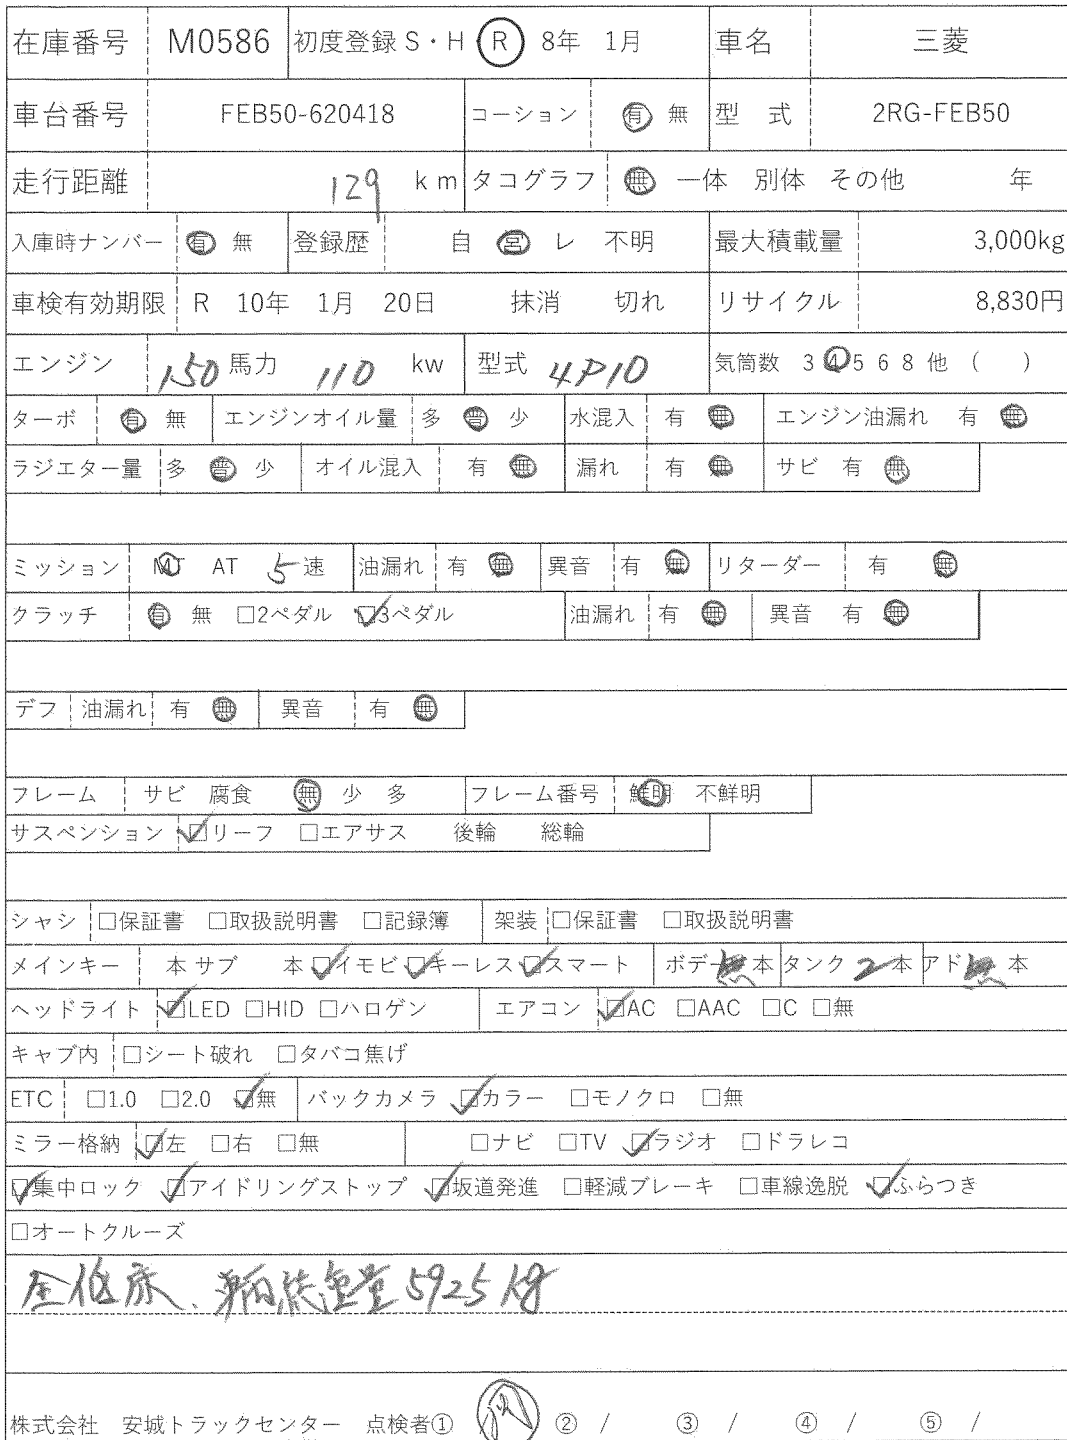 在庫番号 M0586 初度登録 S・H Ⓡ 8年 1月 車名 三菱
車台番号 FEB50-620418 コーション 有 無 型 式 2RG-FEB50
走行距離 129 km タコグラフ 無 一体 別体 その他 年
入庫時ナンバー 有 無 登録歴 自 営 レ 不明 最大積載量 3,000kg
車検有効期限 R 10年 1月 20日 抹消 切れ リサイクル 8,830円
エンジン 150 馬力 110 kw 型式 4P10 気筒数 3 4 5 6 8 他 ( )
ターボ 有 無 エンジンオイル量 多 普 少 水混入 有 無 エンジン油漏れ 有 無
ラジエター量 多 普 少 オイル混入 有 無 漏れ 有 無 サビ 有 無
ミッション MT AT 5速 油漏れ 有 無 異音 有 無 リターダー 有 無
クラッチ 有 無 □2ペダル ☑3ペダル 油漏れ 有 無 異音 有 無
デフ 油漏れ 有 無 異音 有 無
フレーム サビ 腐食 無 少 多 フレーム番号 鮮明 不鮮明
サスペンション ☑リーフ □エアサス 後輪 総輪
シャシ □保証書 □取扱説明書 □記録簿 架装 □保証書 □取扱説明書
メインキー 本 サブ 本 ☑イモビ ☑キーレス ☑スマート ボデー 無 本 タンク 2 本 アド 無 本
ヘッドライト ☑LED □HID □ハロゲン エアコン ☑AC □AAC □C □無
キャブ内 □シート破れ □タバコ焦げ
ETC □1.0 □2.0 ☑無 バックカメラ ☑カラー □モノクロ □無
ミラー格納 ☑左 □右 □無 □ナビ □TV ☑ラジオ □ドラレコ
☑集中ロック ☑アイドリングストップ ☑坂道発進 □軽減ブレーキ □車線逸脱 ☑ふらつき
□オートクルーズ
全低床、車両総重量5925kg
株式会社 安城トラックセンター 点検者① ② / ③ / ④ / ⑤ /